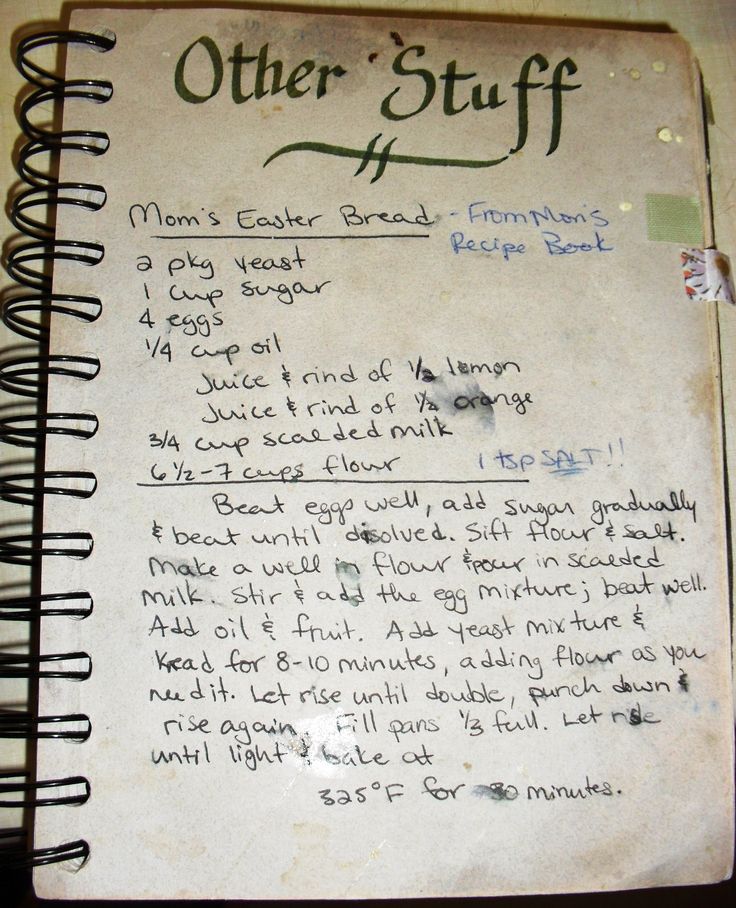 Other Stuff
Mom's Easter Bread - From Mom's
Recipe Book
2 pkg yeast
1 cup sugar
4 eggs
1/4 cup oil
Juice & rind of 1/2 lemon
Juice & rind of 1/2 orange
3/4 cup scalded milk
6 1/2 - 7 cups flour 1 tsp SALT!!
Beat eggs well, add sugar gradually
& beat until disolved. Sift flour & salt.
Make a well in flour & pour in scalded
milk. Stir & add the egg mixture; beat well.
Add oil & fruit. Add yeast mixture &
knead for 8-10 minutes, adding flour as you
need it. Let rise until double, punch down &
rise again. Fill pans 1/3 full. Let rise
until light & bake at
325°F for 30 minutes.